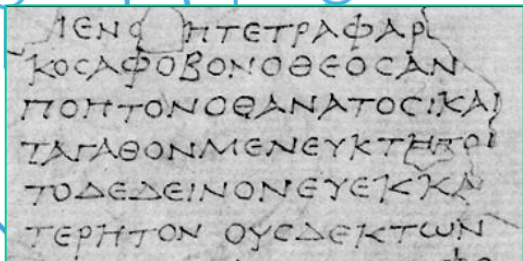 ΜΕΝΟ Η ΤΕΤΡΑΦΑΡ
ΚΟΣΑΦΟΒΟΝΟΘΕΟΣΑΝ
ΠΟΠΤΟΝΟΘΑΝΑΤΟΣΚΑΙ
ΤΑΓΑΘΟΝΜΕΝΕΥΚΤΗΤΟ
ΤΟΔΕΔΕΙΝΟΝΕΥΕΚΚΑ
ΤΕΡΗΤΟΝ ΟΥΣΔΕΚΤΩΝ